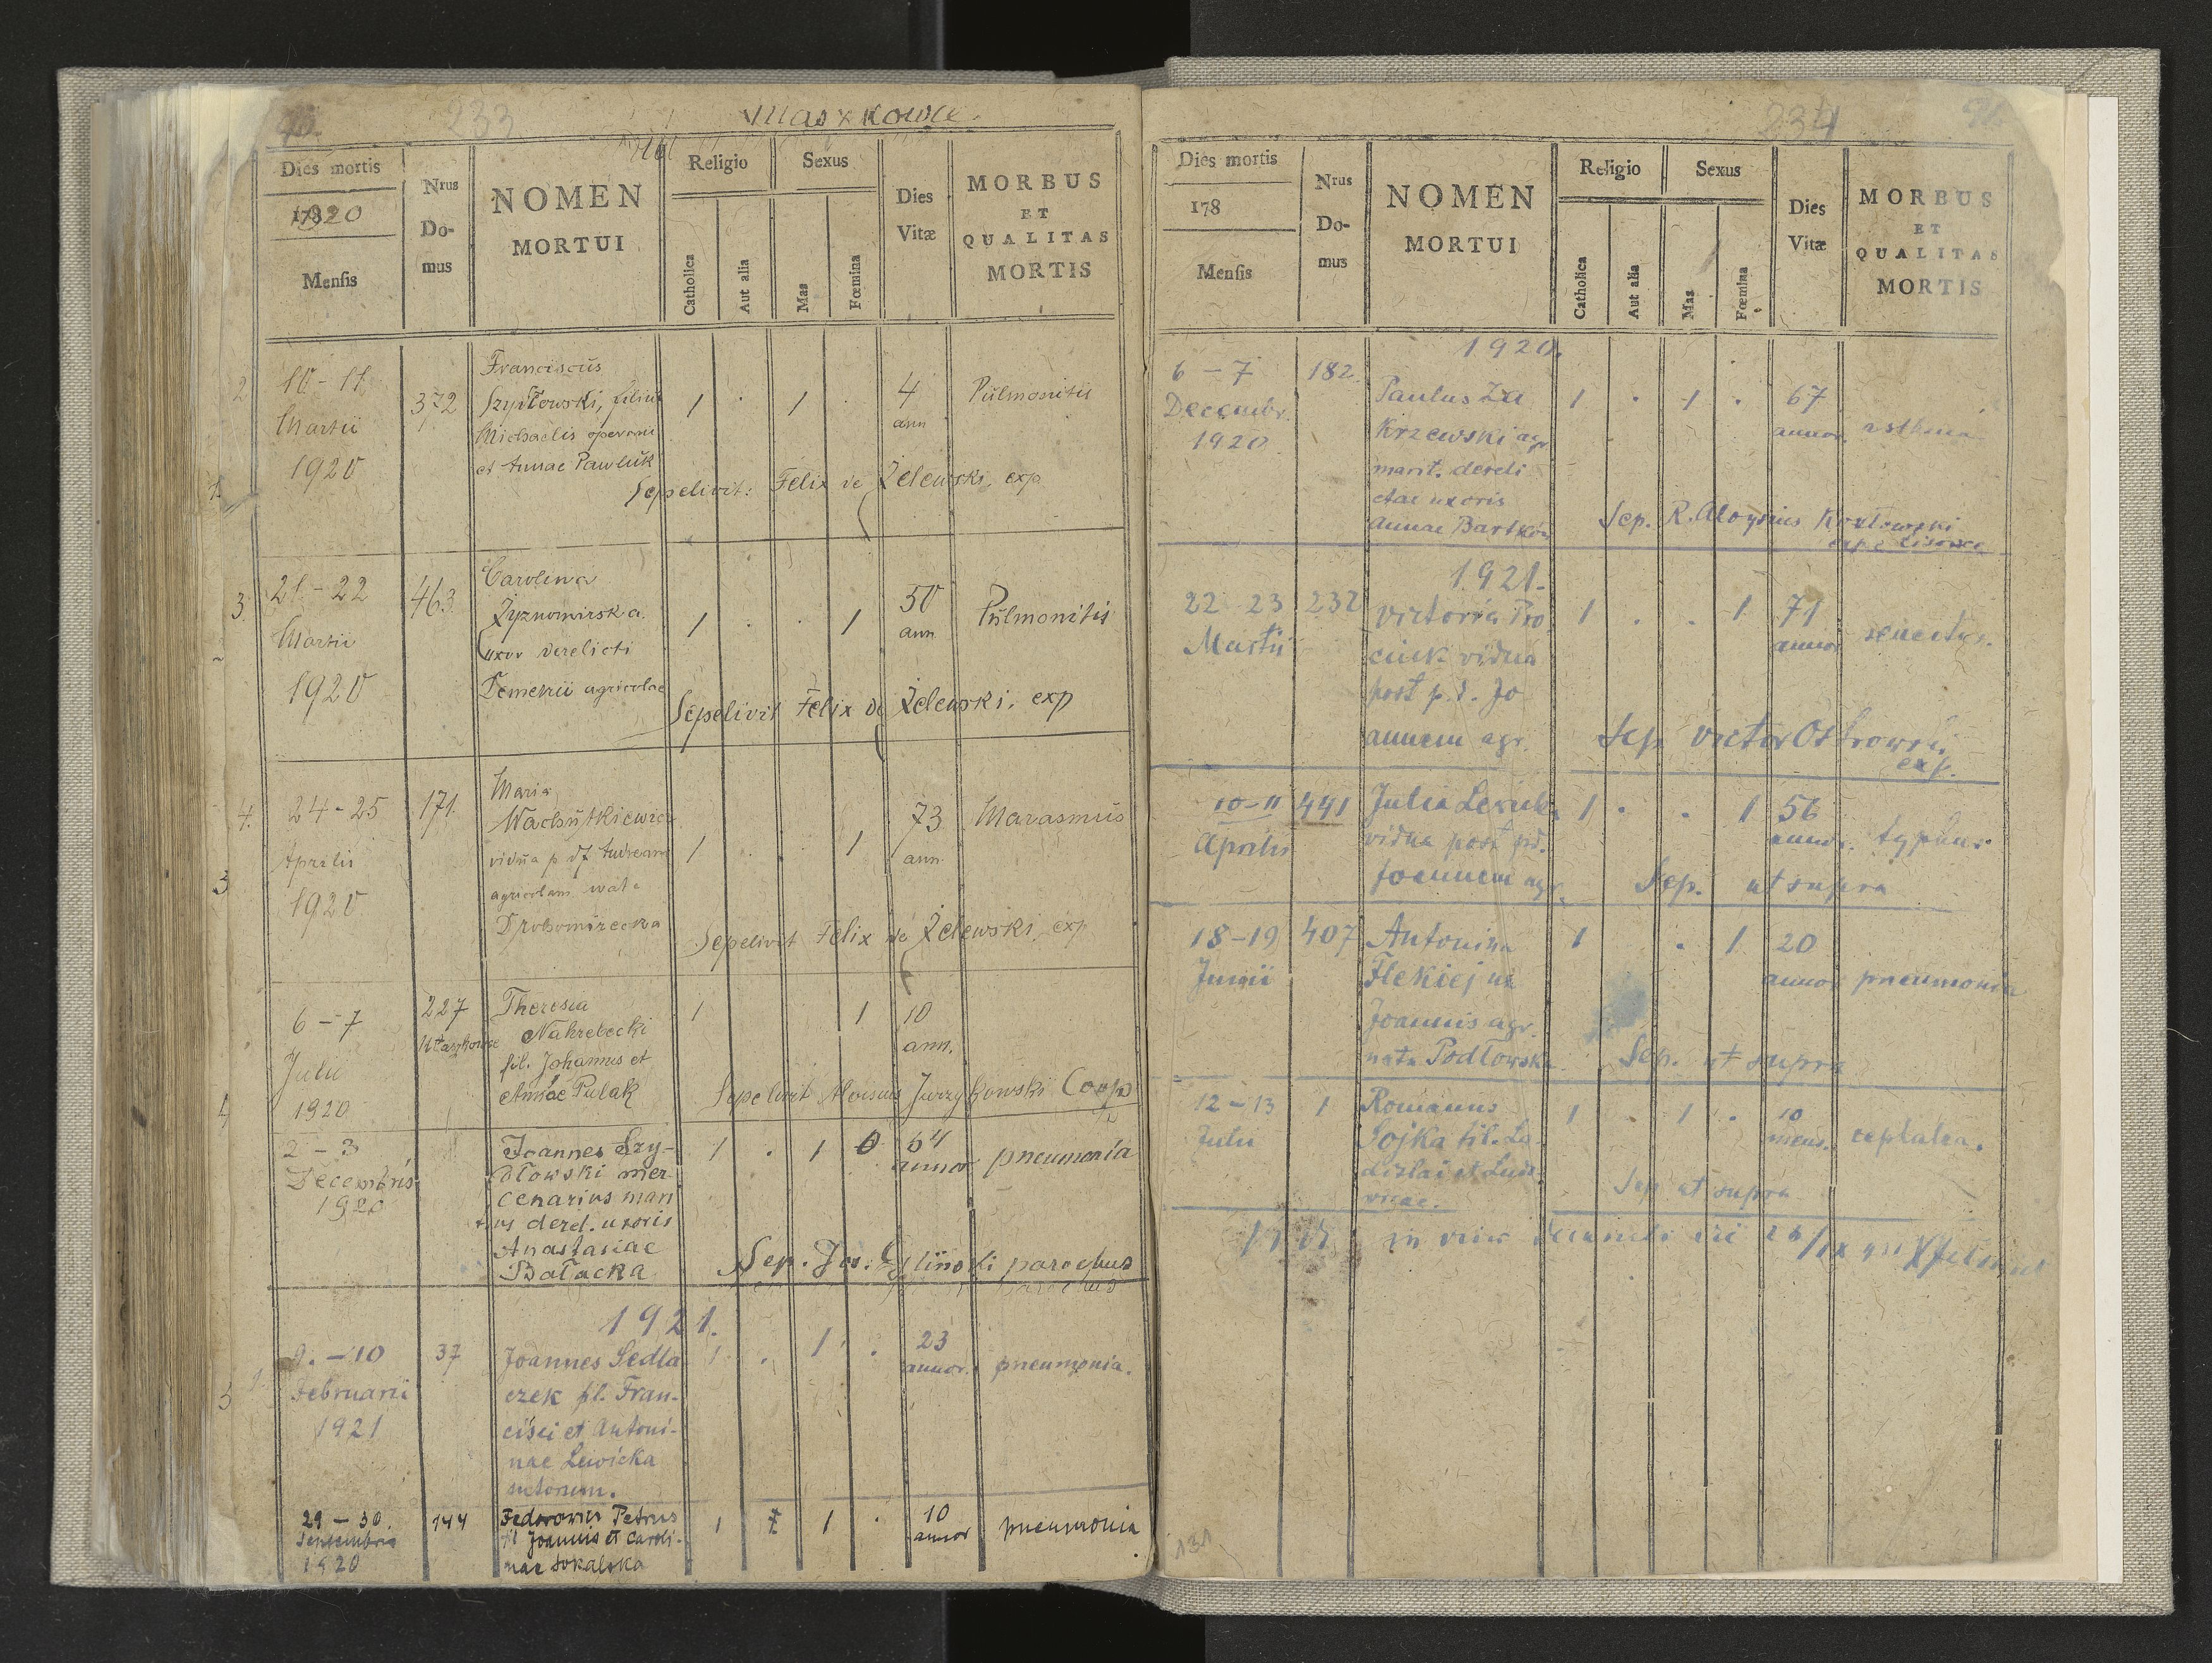 233
Dies mortis
1920
Mensis
Nrus
Do-
mus
NOMEN
MORTUI
Religio
Catholica
Aut alia
Sexus
Mas
Fœmina
Dies
Vitæ
MORBUS
ET
QUALITAS
MORTIS
2
10-11
Martii
1920
372
Franciscus
Szydłowski, filius
Michaelis operarii
et Annae Pawluk
1 . 1 .
4
ann
Pulmonitis
Sepelivit: Felix de Żelewski, exp
3
21-22
Martii
1920
463
Carolina
Żyznomirska
uxor derelicti
agricolae
1 . . 1
50
ann
Pulmonitis
Sepelivit Felix de Żelewski, exp
4.
24-25
Aprilis
1920
171
Maria
vidua p df Andream
agricolam nata
1 . . 1
73
ann
Marasmus
Sepelivit Felix de Żelewski, exp
6-7
Julii
1920
227
Theresia
Nahrebecki
fil. Johannes et
Annae Pulak
1 . . 1
10
ann.
Sepelivit Aloisius Jurzykowski Coop
2-3
Decembris
1920
Joannes Szy-
dłowski mer
cenarius mari
tus derel. uxoris
Anastasiae
Bałacka
1 . 1 0
64
annor
pneumonia
Sep. parochus
1921.
9.-10
Februarii
1921
37
Joannes Sedla
czek fil. Fran-
cisci et Antoni-
nae Lewicka
sutorum.
1 . 1 .
23
annor.
pneumonia.
29-30.
Septembris
1920
144
Fedorowicz Petrus
fil Joannis et Caroli-
nae Sokalska
1 1 .
10
annor
pneumonia
234
Dies mortis
178
Mensis
Nrus
Do-
mus
NOMEN
MORTUI
Religio
Catholica
Aut alia
Sexus
Mas
Fœmina
Dies
Vitæ
MORBUS
ET
QUALITAS
MORTIS
1920.
6-7
Decembr.
1920
182
Paulus Za
krzewski agr
marit. dereli
ctae uxoris
Annae Bartków
1 . 1 .
67
annor.
asthma
Sep. R. Aloysius Kozłowski
1921.
22 23
Martii
232
Victoria Pro
ciuk vidua
post p. d. Jo
annem agr.
1 . . 1
71
annor
senectus.
Sep Victor Ostrowski
exp.
10-11
Aprilis
441
Julia
vidua post pd.
Joannem agr.
1 . . 1
56
annor.
typhus
Sep. ut supra
18-19
Junii
407
Antonina
Joannis agr.
nata Podłowska
1 . 1
20
annor
pneumonia
Sep. ut supra
12-13
Julii
1
Romanus
Sojka fil. La
dislai et Ludo
vicae.
1 . 1 .
10
mens.
Sep ut supra
131